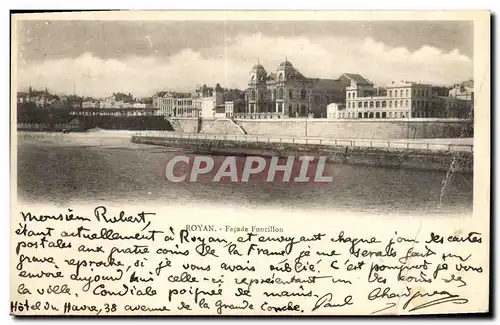 CPARAMA
ROYAN. - Façade Foncillon
Monsieur Robert
étant actuellement à Royan et envoyant chaque jour des cartes
postales aux quatre coins de la France je me serais fait un
grave reproche si je vous avais oublié. C'est pourquoi je vous
envoie aujourd'hui celle-ci représentant un des coins de
la ville. Cordiale poignée de mains. Paul
Hôtel du Havre, 38 avenue de la Grande Conche.